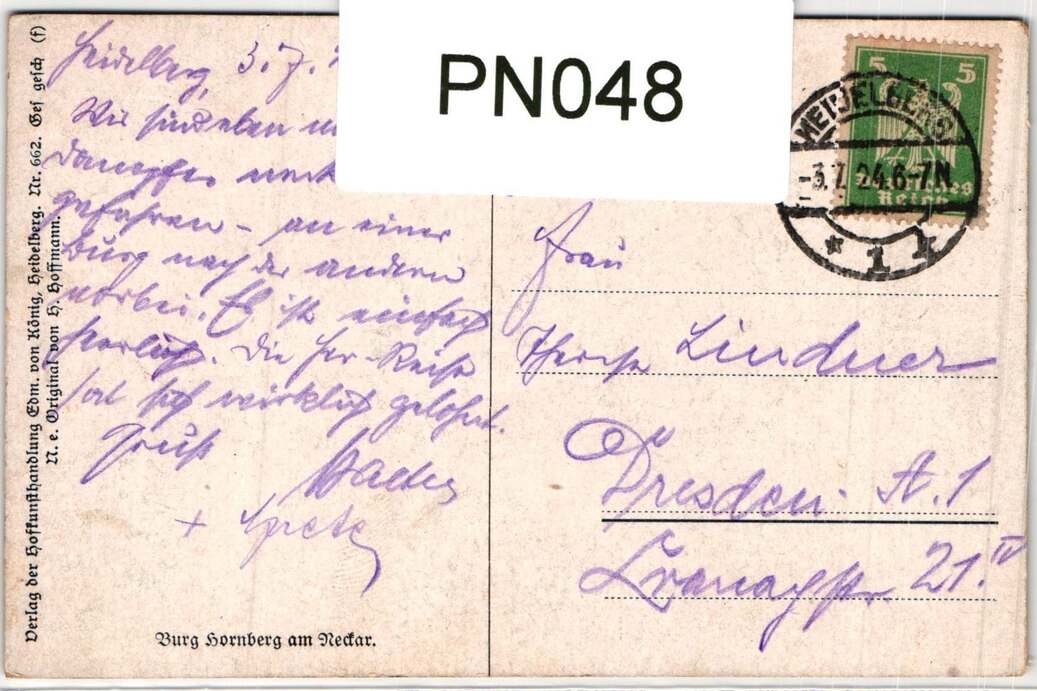 PN048
Heidelberg, 3.7.
Wir sind eben
Dampfer
gefahren – an einer
Burg nach der andern
vorbei. Es ist einfach
herrlich. Die Her-Reise
hat sich wirklich gelohnt.
Gruß
+ Grete
Burg Hornberg am Neckar.
Verlag der Hofkunsthandlung Edm. von König, Heidelberg. Nr. 662. Ges gesch (f)
N. e. Original von H. Hoffmann.
5 5
Deutsches
Reich
HEIDELBERG
-3.7.24.6-7N
* 1
Frau
Lindner
Dresden. A. 1
21. IV